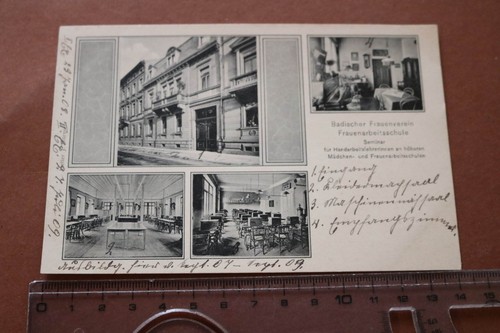 Badischer Frauenverein
Frauenarbeitsschule
Seminar
für Handarbeitslehrerinnen an höheren
Mädchen- und Frauenarbeitsschulen
1. Eingang
2. Kleidermachsaal
3. Maschinennähsaal
4. Empfangszimmer.
Ausbildg. hier v. Sept. 07 – Sept. 09.
0 1 2 3 4 5 6 7 8 9 10 11 12 13 14 15